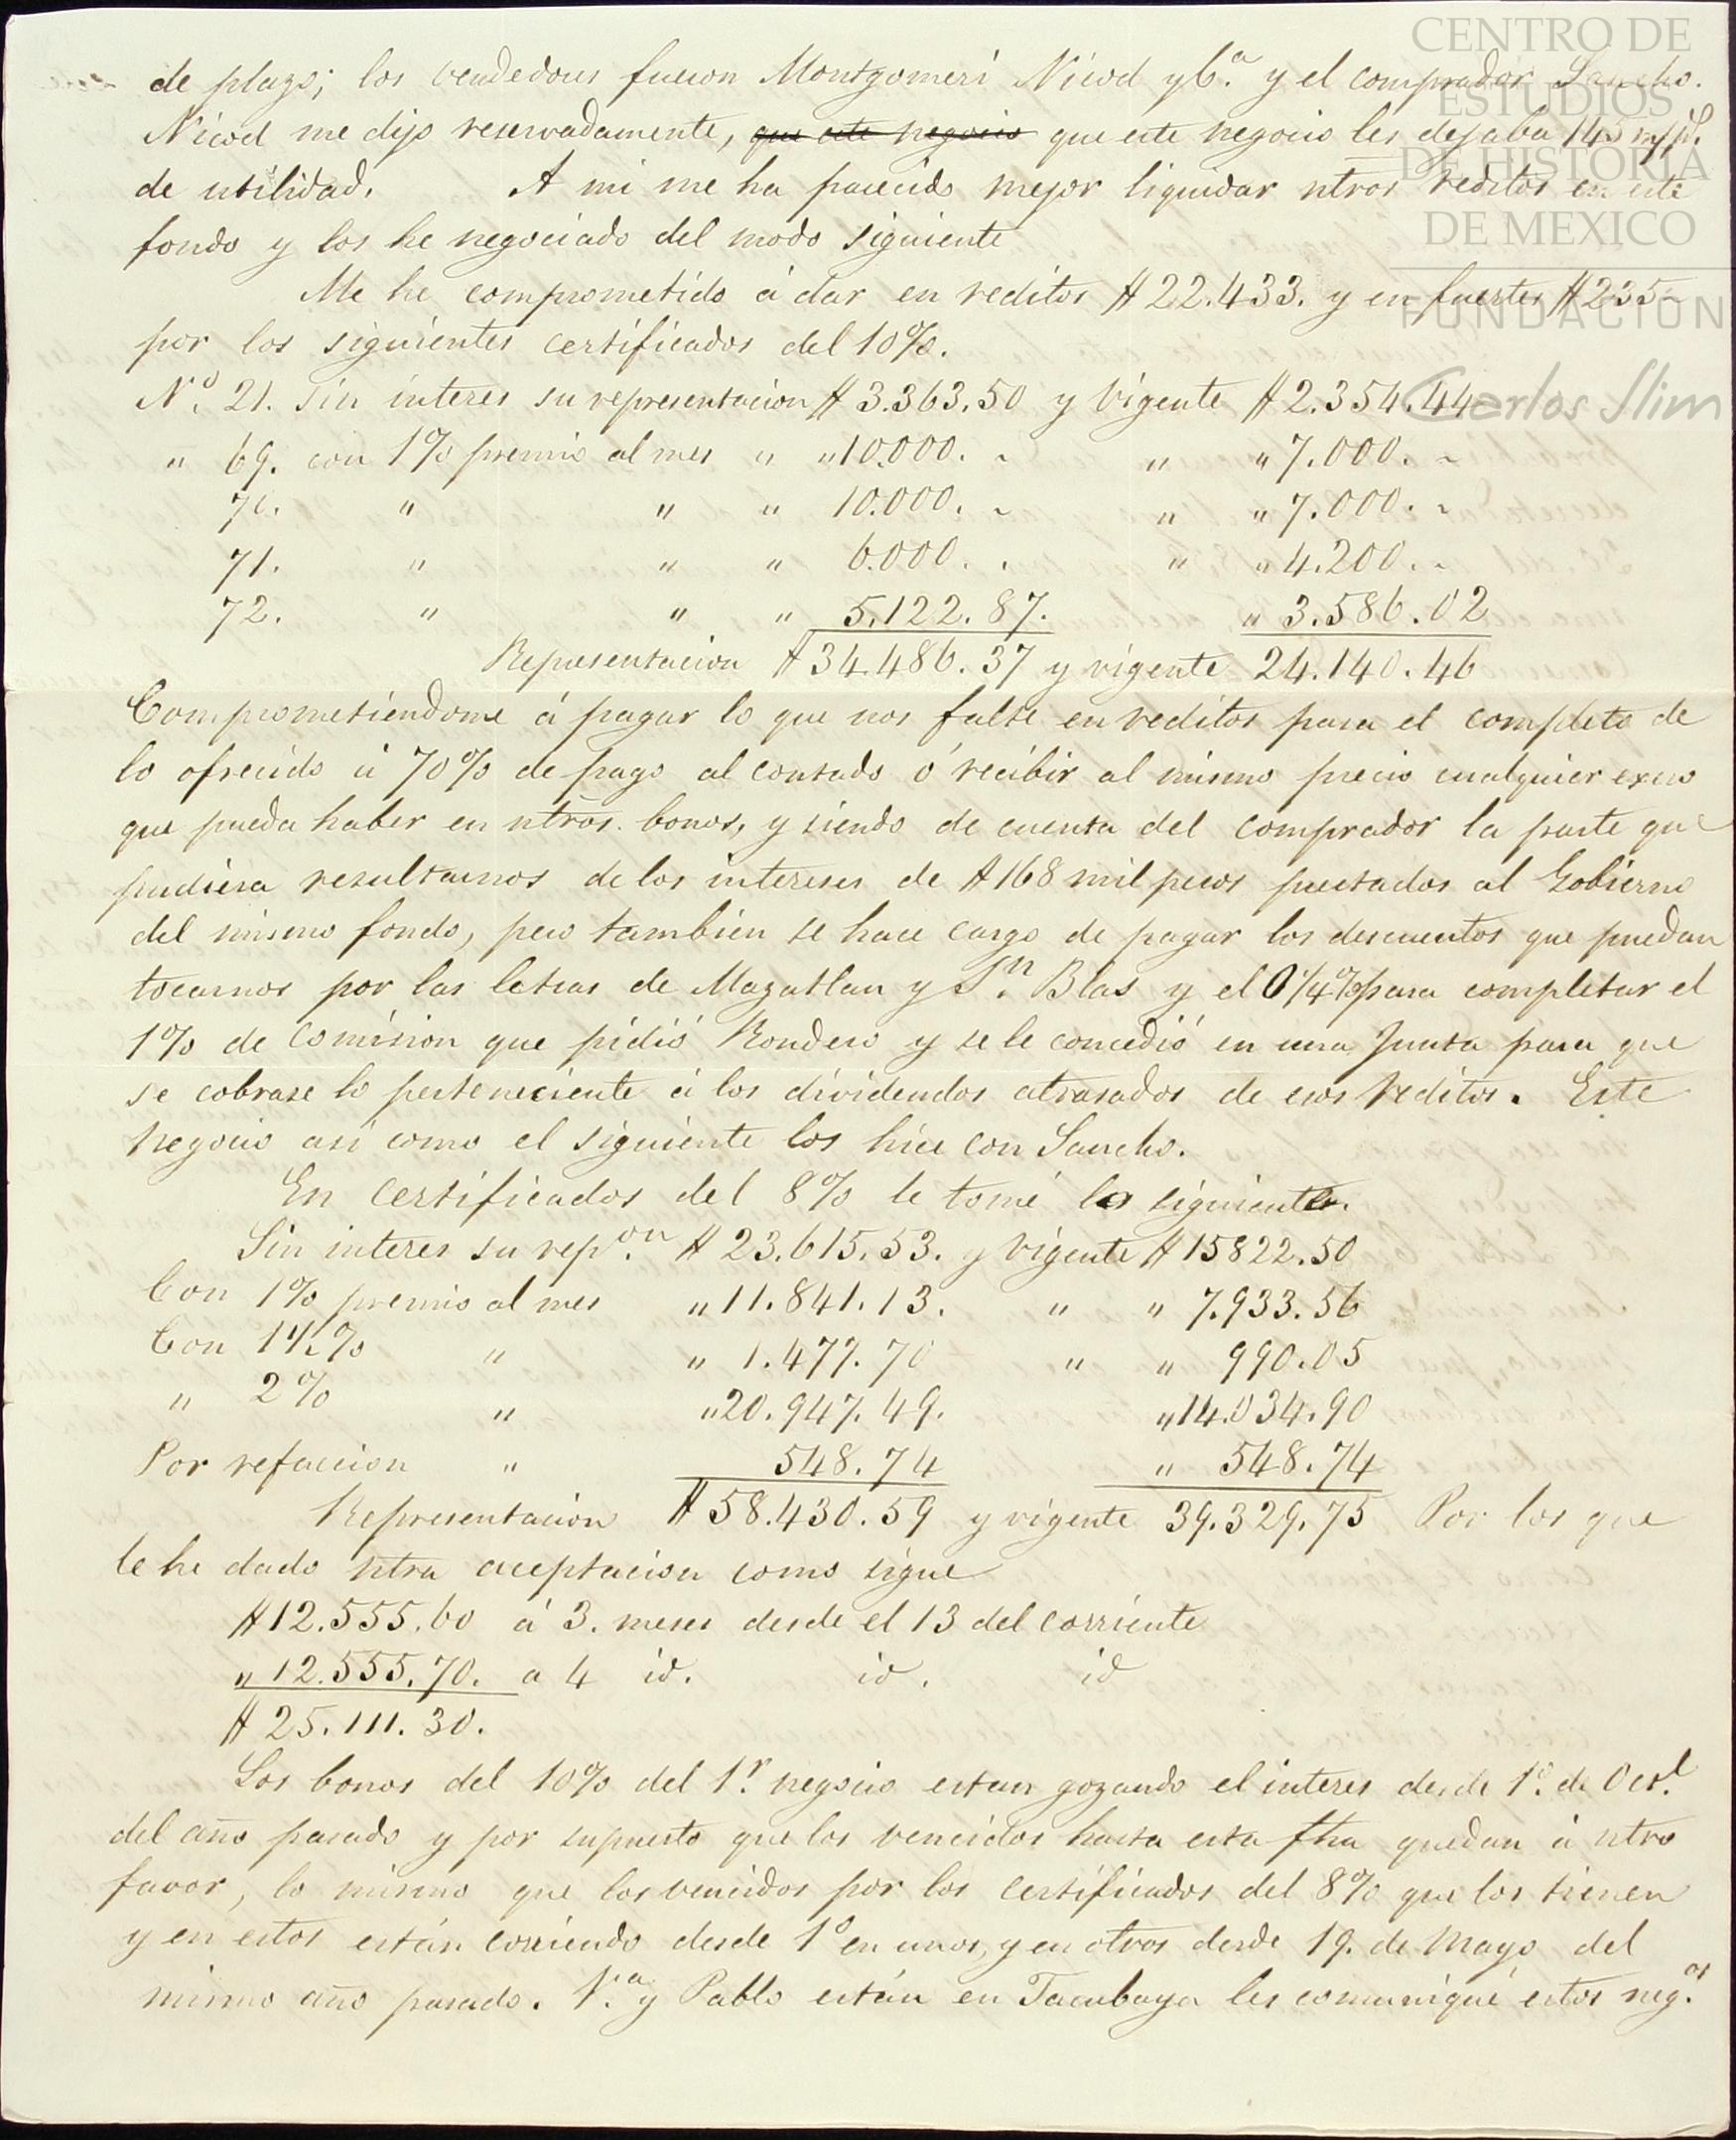 de plazo; los vendedores fueron Montgomeri Nicod y C.ª y el comprador Sancho.
Nicod me dijo reservadamente, que este negocio que este negocio les dejaba 145 m/p.s
de utilidad. A mi me ha parecido mejor liquidar ntros reditos en este
fondo y los he negociado del modo siguiente
Me he comprometido á dar en reditos $22.433. y en fuertes $235
por los siguientes certificados del 10%.
N.º 21. sin interes su representacion $ 3.363.50 y vigente $2.354.44
" 69. con 1% premio al mes " "10.000. - " "7.000. -
70. " " " 10.000. - " "7.000. -
71. " " " 6.000. . " "4.200. -
72. " " " 5.122.87. " 3.586.02
Representacion $34.486.37 y vigente 24.140.46
Comprometiendome á pagar lo que nos falte en reditos para el completo de
lo ofrecido á 70% de pago al contado ó recibir al mismo precio cualquier exeso
que pueda haber en ntros. bonos, y siendo de cuenta del comprador la parte que
pudiera resultarnos de los intereses de $168 mil pesos prestados al Gobierno
del mismo fondo, pero tambien se hace cargo de pagar los descuentos que puedan
tocarnos por las letras de Mazatlan y S.n Blas y el 0 1/4% para completar el
1% de comision que pidió Rondero y se le concedió en una Junta para que
se cobrase lo perteneciente á los dividendos atrasados de esos reditos. Este
negocio asi como el siguiente los hice con Sancho.
En certificados del 8% le tomé los siguientes.
Sin interes su rep.on $ 23.615.53. y vigente $15822.50
Con 1% premio al mes "11.841.13. " " 7.933.56
Con 1½% " " 1.477.70 " " 990.05
" 2% " "20.947.49. "14.034.90
Por refaccion " 548.74 " 548.74
Representacion $58.430.59 y vigente 39.329.75 Por los que
le he dado ntra aceptacion como sigue
$12.555.60 á 3. meses desde el 13 del corriente
"12.555.70. a 4 id. id. id
$ 25.111.30.
Los bonos del 10% del 1.r negocio estan gozando el interes desde 1.º de Oct.e
del año pasado y por supuesto que los vencidos hasta esta fha quedan á ntro
favor, lo mismo que los vencidos por los certificados del 8% que los tienen
y en estos están corriendo desde 1º en unos, y en otros desde 19. de Mayo del
mismo año pasado. V.ª y Pablo están en Tacubaya les comuniqué estos neg.os
CENTRO DE
ESTUDIOS
DE HISTORIA
DE MEXICO
FUNDACIÓN
Carlos Slim